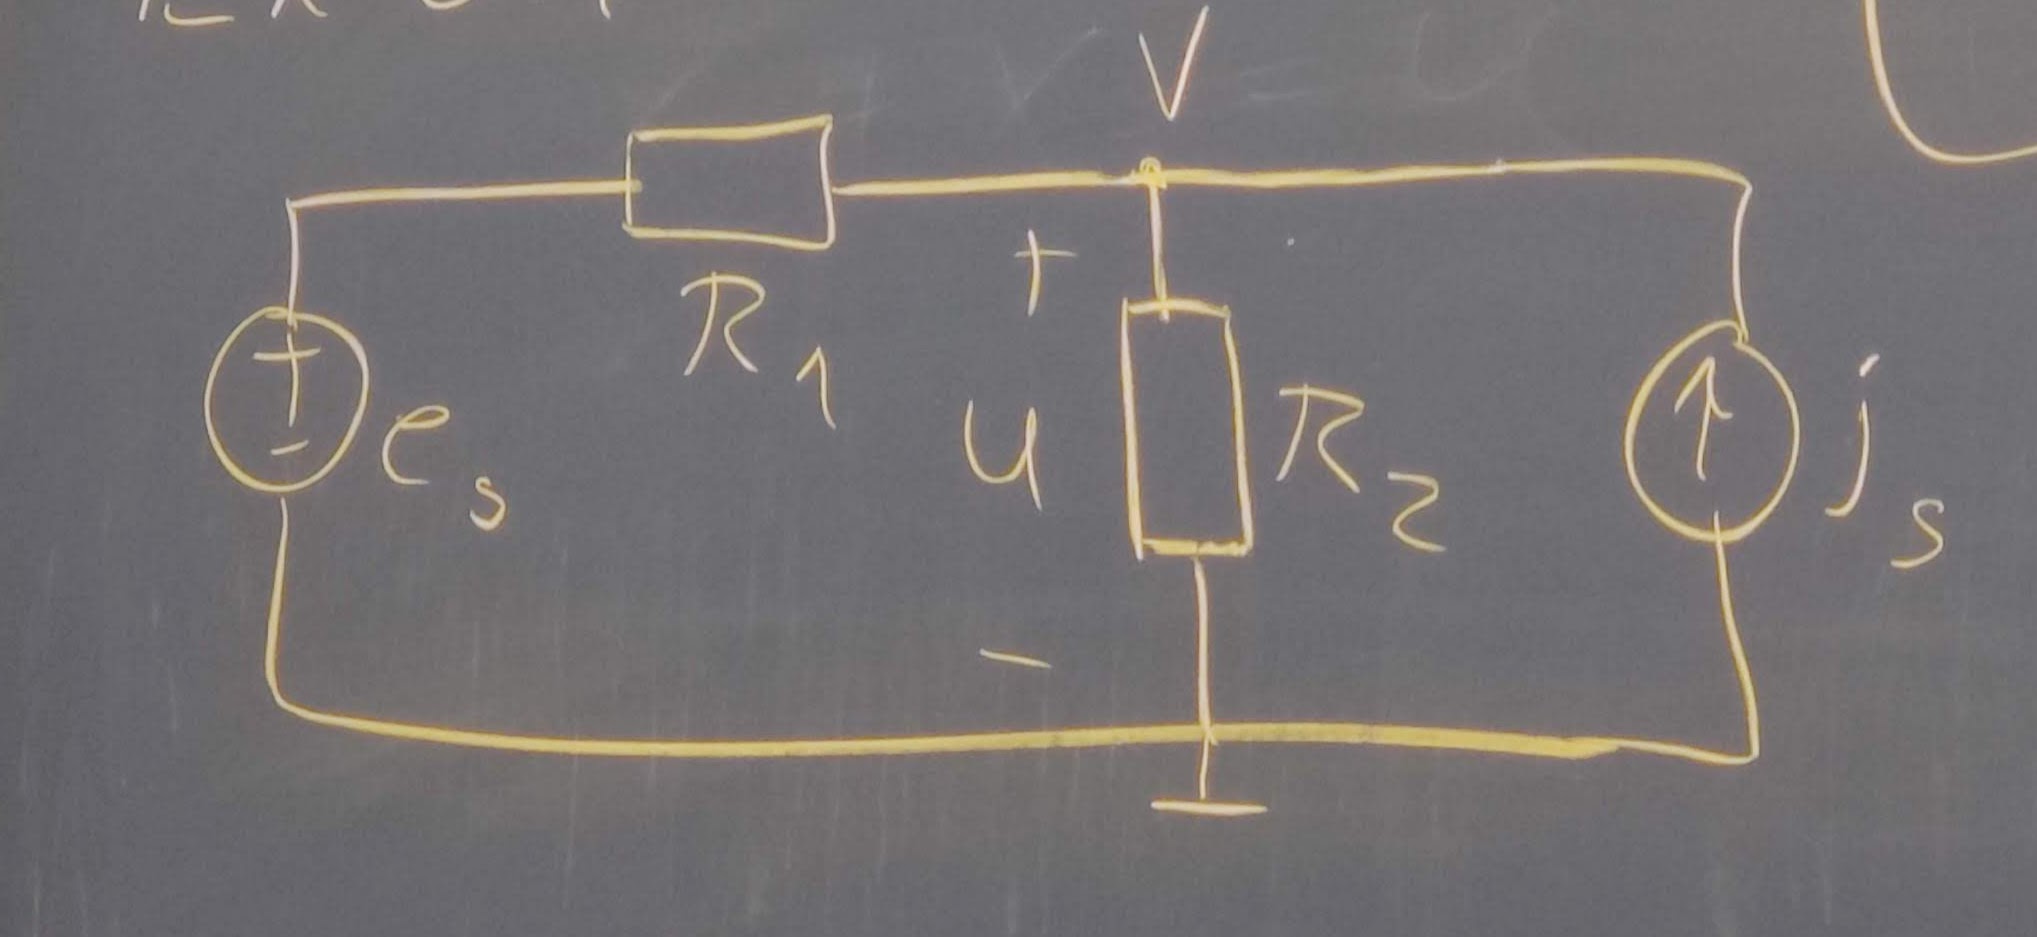 V
+
R1
+
-
es
u
R2
js
-